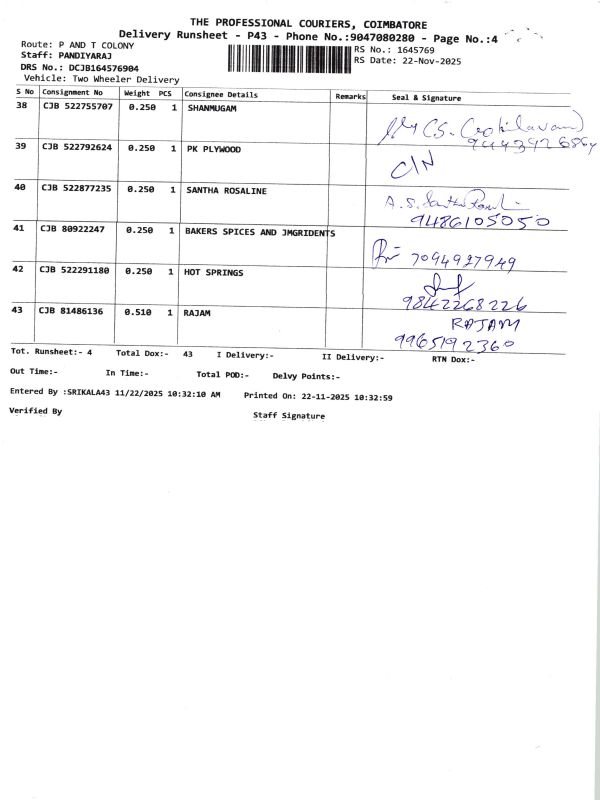 THE PROFESSIONAL COURIERS, COIMBATORE
Delivery Runsheet - P43 - Phone No.:9047080280 - Page No.:4
Route: P AND T COLONY
RS No.: 1645769
Staff: PANDIYARAJ
RS Date: 22-Nov-2025
DRS No.: DCJB164576904
Vehicle: Two Wheeler Delivery
S No Consignment No Weight PCS Consignee Details Remarks Seal & Signature
38 CJB 522755707 0.250 1 SHANMUGAM
39 CJB 522792624 0.250 1 PK PLYWOOD C/N
40 CJB 522877235 0.250 1 SANTHA ROSALINE A.S.
9486105050
41 CJB 80922247 0.250 1 BAKERS SPICES AND JMGRIDENTS
7094927949
42 CJB 522291180 0.250 1 HOT SPRINGS
9842268226
43 CJB 81486136 0.510 1 RAJAM RAJAM
9965192360
Tot. Runsheet:- 4 Total Dox:- 43 I Delivery:- II Delivery:- RTN Dox:-
Out Time:- In Time:- Total POD:- Delvy Points:-
Entered By :SRIKALA43 11/22/2025 10:32:10 AM Printed On: 22-11-2025 10:32:59
Verified By Staff Signature